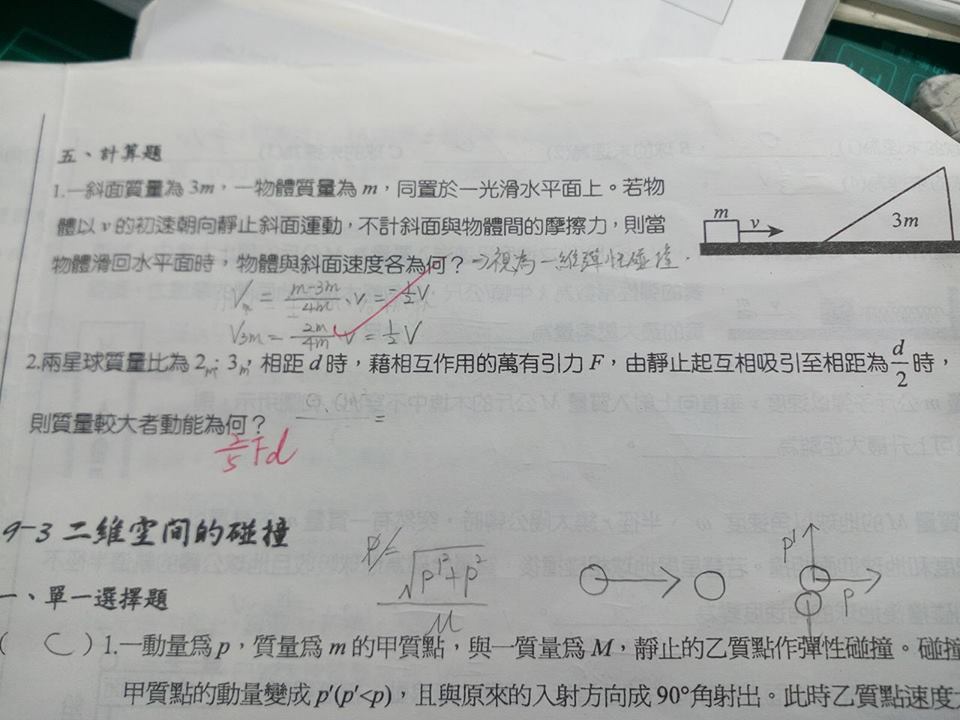 五、計算題
1.一斜面質量為 3m，一物體質量為 m，同置於一光滑水平面上。若物
體以 v 的初速朝向靜止斜面運動，不計斜面與物體間的摩擦力，則當
物體滑回水平面時，物體與斜面速度各為何？→視為一維彈性碰撞.
m
v
3m
Vm = m-3m/4m · v = -1/2 V
V3m = 2m/4m V = 1/2 V
2.兩星球質量比為 2m: 3m, 相距 d 時，藉相互作用的萬有引力 F，由靜止起互相吸引至相距為 d/2 時，
則質量較大者動能為何？
2/5 Fd
9-3 二維空間的碰撞
√p'²+p²
M
p'
p
一、單一選擇題
( C ) 1.一動量為 p，質量為 m 的甲質點，與一質量為 M，靜止的乙質點作彈性碰撞。碰撞
甲質點的動量變成 p'(p'<p)，且與原來的入射方向成 90°角射出。此時乙質點速度